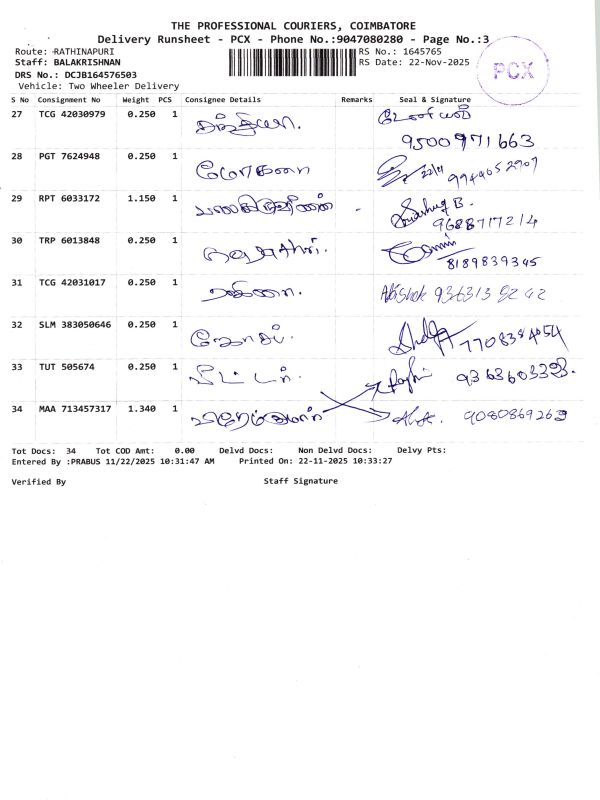 THE PROFESSIONAL COURIERS, COIMBATORE
Delivery Runsheet - PCX - Phone No.:9047080280 - Page No.:3
Route: RATHINAPURI RS No.: 1645765
Staff: BALAKRISHNAN RS Date: 22-Nov-2025
PCX
DRS No.: DCJB164576503
Vehicle: Two Wheeler Delivery
S No Consignment No Weight PCS Consignee Details Remarks Seal & Signature
27 TCG 42030979 0.250 1
9500971663
28 PGT 7624948 0.250 1 மோகனா 22/11 9944052907
29 RPT 6033172 1.150 1 - B.
9688717214
30 TRP 6013848 0.250 1
8189839345
31 TCG 42031017 0.250 1 Abishek 936313 82 42
32 SLM 383050646 0.250 1 7708384054
33 TUT 505674 0.250 1 9363603393.
34 MAA 713457317 1.340 1 9080869263
Tot Docs: 34 Tot COD Amt: 0.00 Delvd Docs: Non Delvd Docs: Delvy Pts:
Entered By :PRABUS 11/22/2025 10:31:47 AM Printed On: 22-11-2025 10:33:27
Verified By Staff Signature